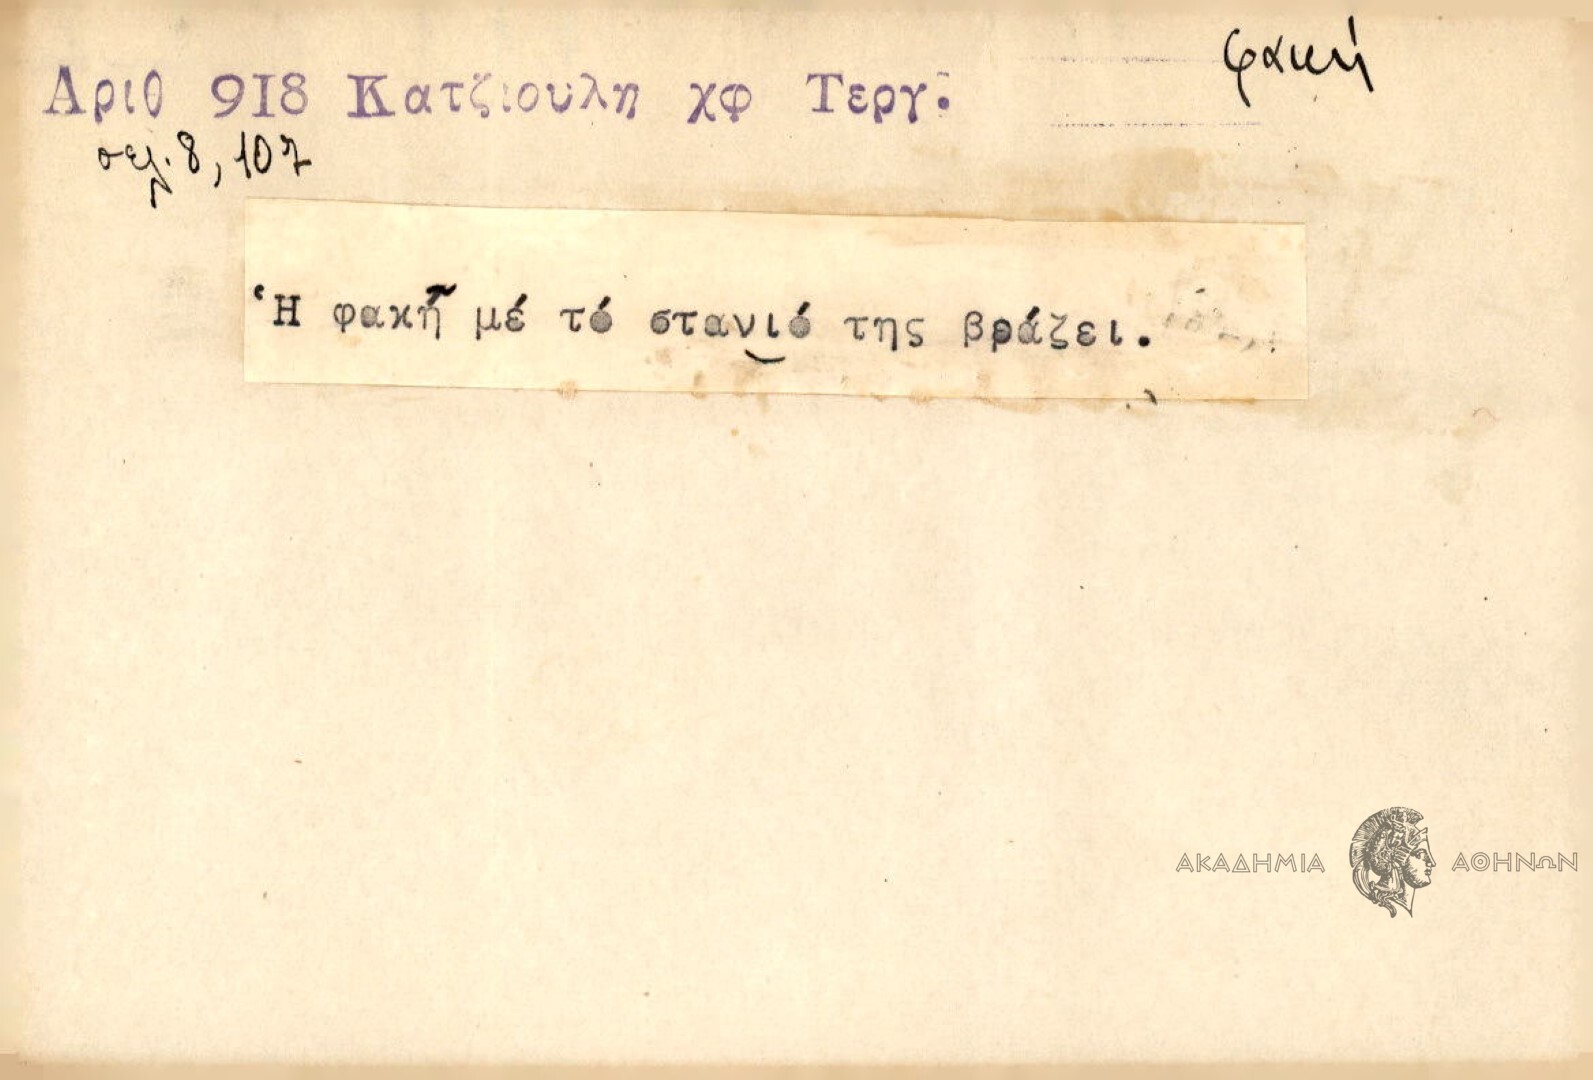 φακή
Αριθ 918 Κατζιουλη χφ Τεργ.
σελ. 8, 107
Ἡ φακῆ μέ τό στανιό της βράζει.
ΑΚΑΔΗΜΙΑ ΑΘΗΝΩΝ